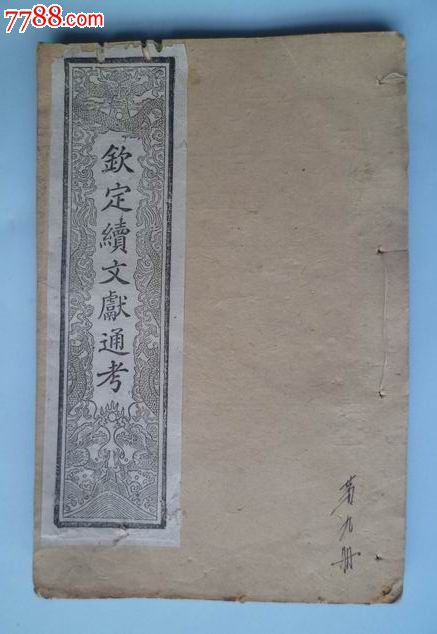 7788.com
欽定續文獻通考
第九册